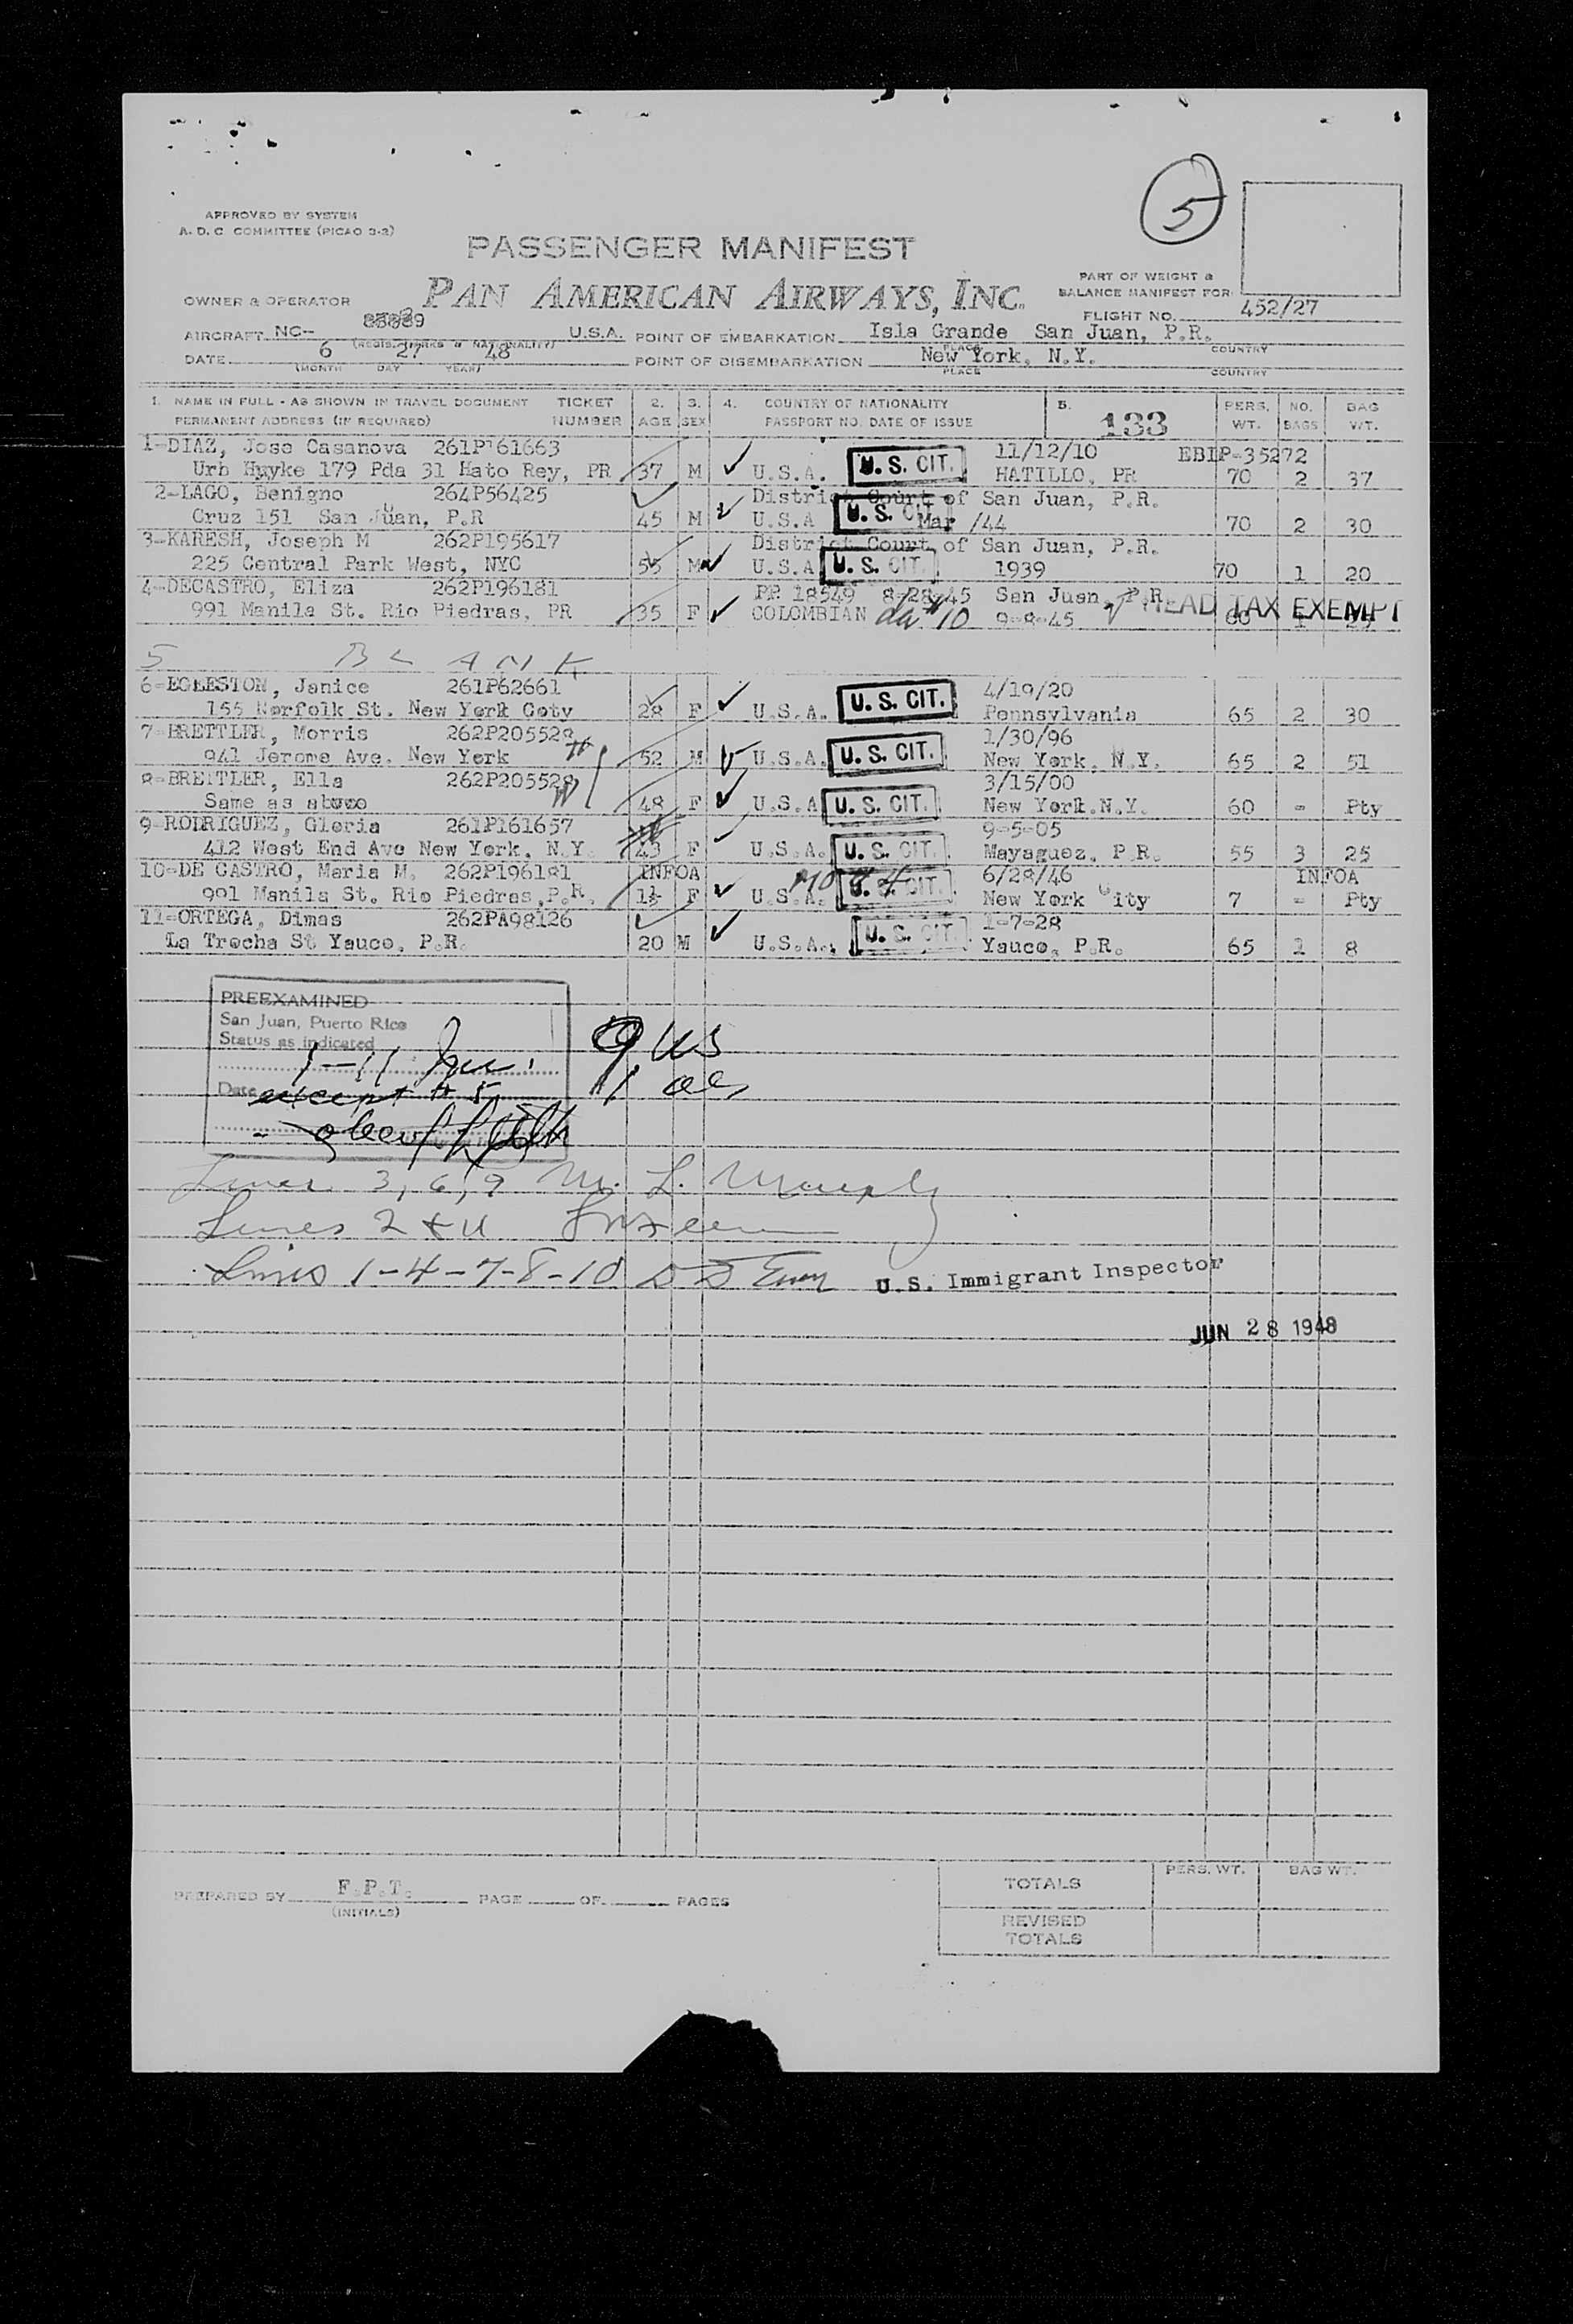 5
APPROVED BY SYSTEM
A. D. C COMMITTEE (PICAO 3-2)
PASSENGER MANIFEST
PART OF WEIGHT &
BALANCE MANIFEST FOR
OWNER & OPERATOR PAN AMERICAN AIRWAYS, INC.
FLIGHT NO. 452/27
AIRCRAFT NC-- U.S.A. POINT OF EMBARKATION Isla Grande San Juan, P.R.
(REGIS. MARKS & NATIONALITY) PLACE COUNTRY
DATE 6 27 48 POINT OF DISEMBARKATION New York, N.Y.
(MONTH DAY YEAR) PLACE COUNTRY
1. NAME IN FULL - AS SHOWN IN TRAVEL DOCUMENT TICKET 2. 3. 4. COUNTRY OF NATIONALITY 5. PERS. NO. BAG
PERMANENT ADDRESS (IF REQUIRED) NUMBER AGE SEX PASSPORT NO. DATE OF ISSUE 133 WT. BAGS WT.
1-DIAZ, Jose Casanova 261P161663 11/12/10 EBIP-35272
Urb Huyke 179 Pda 31 Hato Rey, PR 37 M U.S.A. U.S. CIT. HATILLO, PR 70 2 37
2-LAGO, Benigno 264P56425 District Court of San Juan, P.R.
Cruz 151 San Juan, P.R 45 M U.S.A U.S. CIT Mar /44 70 2 30
3-KARESH, Joseph M 262P195617 District Court of San Juan, P.R.
225 Central Park West, NYC 55 M U.S.A U.S. CIT. 1939 70 1 20
4-DECASTRO, Eliza 262P196181 PP 18549 8-28-45 San Juan, P.R
991 Manila St. Rio Piedras, PR 35 F COLOMBIAN 9-8-45 HEAD TAX EXEMPT
5 BLANK
6-EGLESTON, Janice 261P62661 4/19/20
155 Norfolk St. New York Coty 28 F U.S.A. U.S. CIT. Pennsylvania 65 2 30
7-BRETTLER, Morris 262P205528 1/30/96
941 Jerome Ave. New York 52 M U.S.A. U.S. CIT. New York, N.Y. 65 2 51
8-BRETTLER, Ella 262P205528 3/15/00
Same as above 48 F U.S.A U.S. CIT. New York.N.Y. 60 - Pty
9-RODRIGUEZ, Gloria 261P161657 9-5-05
412 West End Ave New York, N.Y. 43 F U.S.A. U.S. CIT. Mayaguez, P.R. 55 3 25
10-DE CASTRO, Maria M. 262P196181 INFOA 6/28/46 INFOA
991 Manila St. Rio Piedras,P.R. 1½ F U.S.A. U.S. CIT. New York City 7 - Pty
11-ORTEGA, Dimas 262PA98126 1-7-28
La Trocha St Yauco, P.R. 20 M U.S.A., U.S. CIT. Yauco, P.R. 65 1 8
PREEXAMINED
San Juan, Puerto Rico
Status as indicated
1-11 Inc. 9 US
Date except # 5 1
Lines 3, 6, 9 M. L. Murphy
Lines 2 & 11
Lines 1-4-7-8-10
U.S. Immigrant Inspector
JUN 28 1948
PREPARED BY F.P.T. PAGE OF PAGES
(INITIALS)
TOTALS PERS. WT. BAG WT.
REVISED
TOTALS